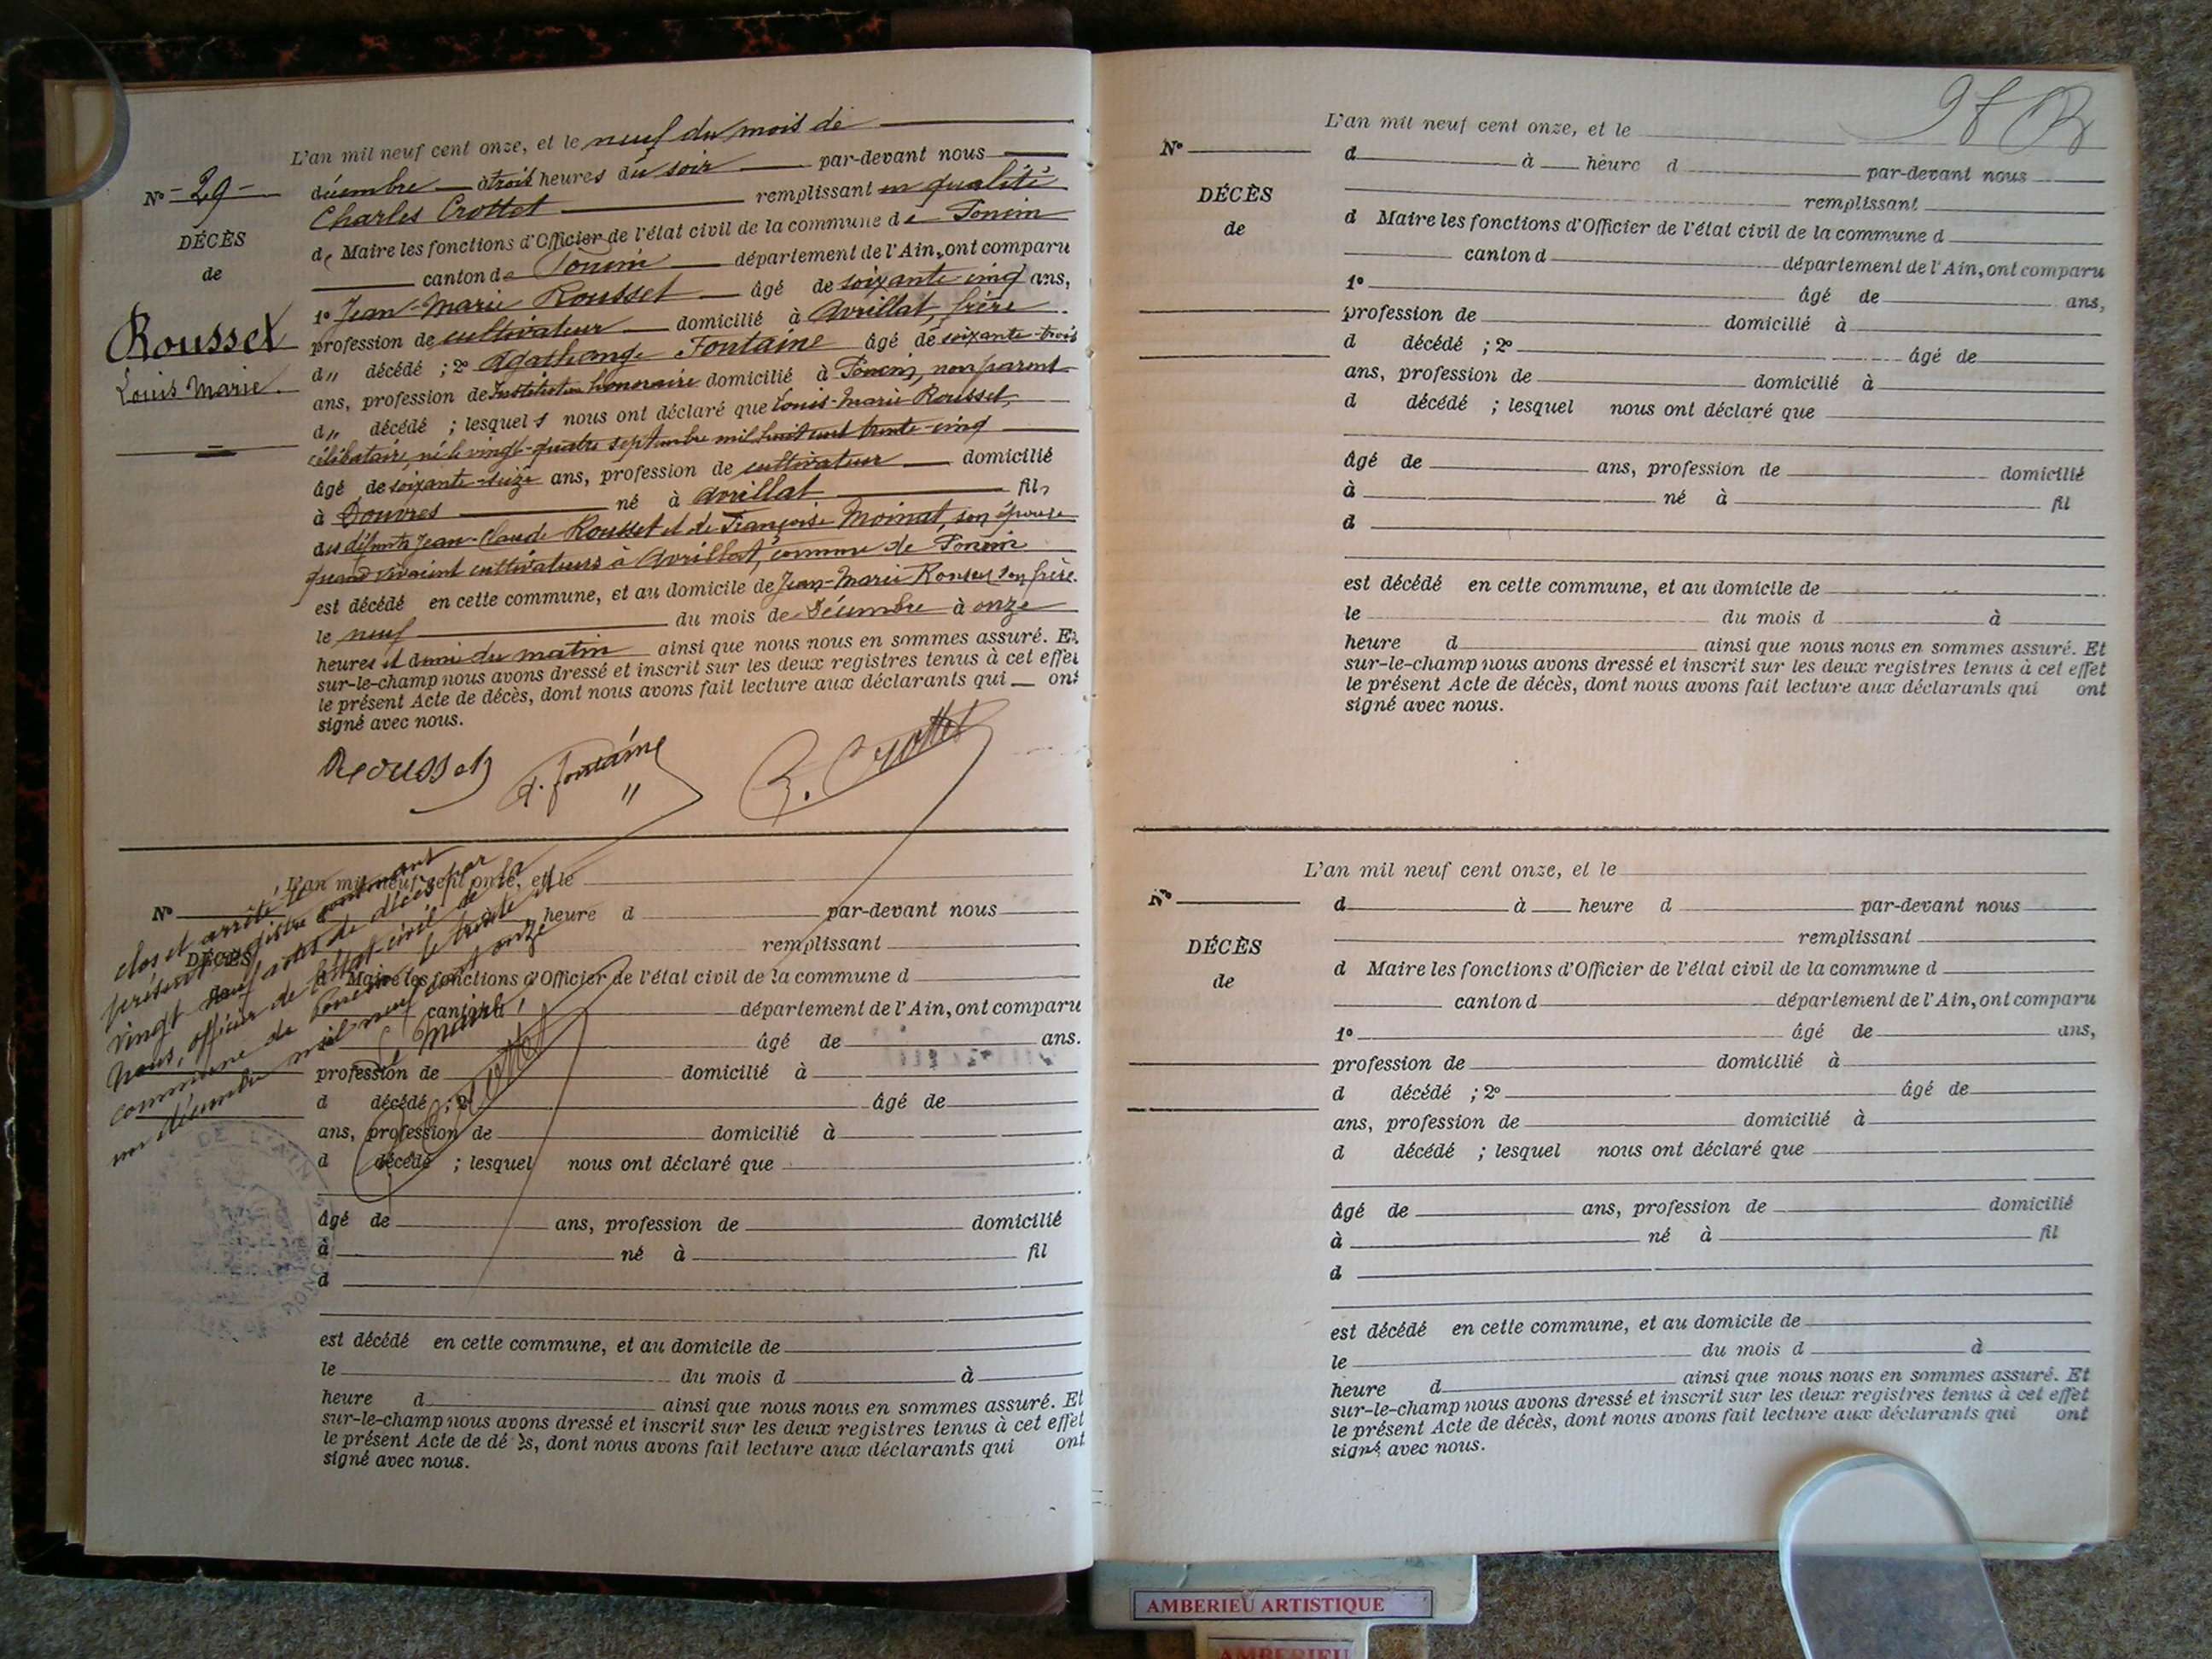 L'an mil neuf cent onze, et le neuf du mois de
N° - 29 -
décembre à trois heures du soir par-devant nous
Charles Crottet remplissant en qualité
DÉCÈS
de Maire les fonctions d'Officier de l'état civil de la commune de Poncin
de
canton de Poncin département de l'Ain, ont comparu
1° Jean-Marie Rousset âgé de soixante-cinq ans,
Rousset
profession de cultivateur domicilié à Avrillat, frère
Louis Marie.
d" décédé ; 2° Agathange Fontaine âgé de soixante-trois
ans, profession de Instituteur honoraire domicilié à Poncin, non parent
d" décédé ; lesquels nous ont déclaré que Louis-Marie Rousset,
célibataire, né le vingt-quatre septembre mil huit cent trente-cinq
âgé de soixante-seize ans, profession de cultivateur domicilié
à Douvres né à Avrillat fils
des défunts Jean-Claude Rousset et de Françoise Moinat, son épouse
quand vivaient cultivateurs à Avrillat, commune de Poncin
est décédé en cette commune, et au domicile de Jean-Marie Rousset son frère.
le neuf du mois de Décembre à onze
heures et demie du matin ainsi que nous nous en sommes assuré. Et
sur-le-champ nous avons dressé et inscrit sur les deux registres tenus à cet effet
le présent Acte de décès, dont nous avons fait lecture aux déclarants qui ont
signé avec nous.
Rousset A. Fontaine C. Crottet
clos et arrêté le
présent registre contenant
vingt neuf actes de décès par
Nous, officier de l'état civil de la
commune de Poncin le trente et
un décembre mil neuf cent onze
Le Maire,
C. Crottet
L'an mil neuf cent onze, et le
N°
heure d par-devant nous
remplissant
DÉCÈS
d Maire les fonctions d'Officier de l'état civil de la commune d
canton d département de l'Ain, ont comparu
âgé de ans.
profession de domicilié à
d décédé ; 2° âgé de
ans, profession de domicilié à
d décédé ; lesquel nous ont déclaré que
DE L'AIN
PONCIN
âgé de ans, profession de domicilié
à né à fil
d
est décédé en cette commune, et au domicile de
le du mois d à
heure d ainsi que nous nous en sommes assuré. Et
sur-le-champ nous avons dressé et inscrit sur les deux registres tenus à cet effet
le présent Acte de décès, dont nous avons fait lecture aux déclarants qui ont
signé avec nous.
L'an mil neuf cent onze, et le
N°
d à heure d par-devant nous
DÉCÈS
remplissant
de
d Maire les fonctions d'Officier de l'état civil de la commune d
canton d département de l'Ain, ont comparu
1° âgé de ans,
profession de domicilié à
d décédé ; 2° âgé de
ans, profession de domicilié à
d décédé ; lesquel nous ont déclaré que
âgé de ans, profession de domicilié
à né à fil
d
est décédé en cette commune, et au domicile de
le du mois d à
heure d ainsi que nous nous en sommes assuré. Et
sur-le-champ nous avons dressé et inscrit sur les deux registres tenus à cet effet
le présent Acte de décès, dont nous avons fait lecture aux déclarants qui ont
signé avec nous.
L'an mil neuf cent onze, et le
N°
d à heure d par-devant nous
remplissant
DÉCÈS
d Maire les fonctions d'Officier de l'état civil de la commune d
de
canton d département de l'Ain, ont comparu
1° âgé de ans,
profession de domicilié à
d décédé ; 2° âgé de
ans, profession de domicilié à
d décédé ; lesquel nous ont déclaré que
âgé de ans, profession de domicilié
à né à fil
d
est décédé en cette commune, et au domicile de
le du mois d à
heure d ainsi que nous nous en sommes assuré. Et
sur-le-champ nous avons dressé et inscrit sur les deux registres tenus à cet effet
le présent Acte de décès, dont nous avons fait lecture aux déclarants qui ont
signé avec nous.
AMBERIEU ARTISTIQUE
AMBERIEU